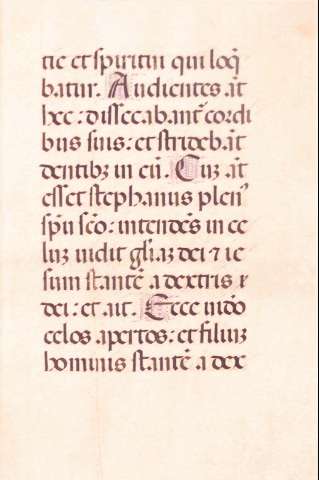 tie et spiritui qui loq̄
batur. Audientes aūt
hec: dissecabant᷑ cordi
bus suis: et stridebāt
dentibꝫ in eū. Cuꝫ aūt
esset stephanus plen᷒
spū scō: intendēs in ce
luꝫ uidit gl̄iaꝫ dei ⁊ ie
sum stantē a dextris v̓
dei: et ait. Ecce uideo
celos apertos: et filiuꝫ
hominis stantē a dex